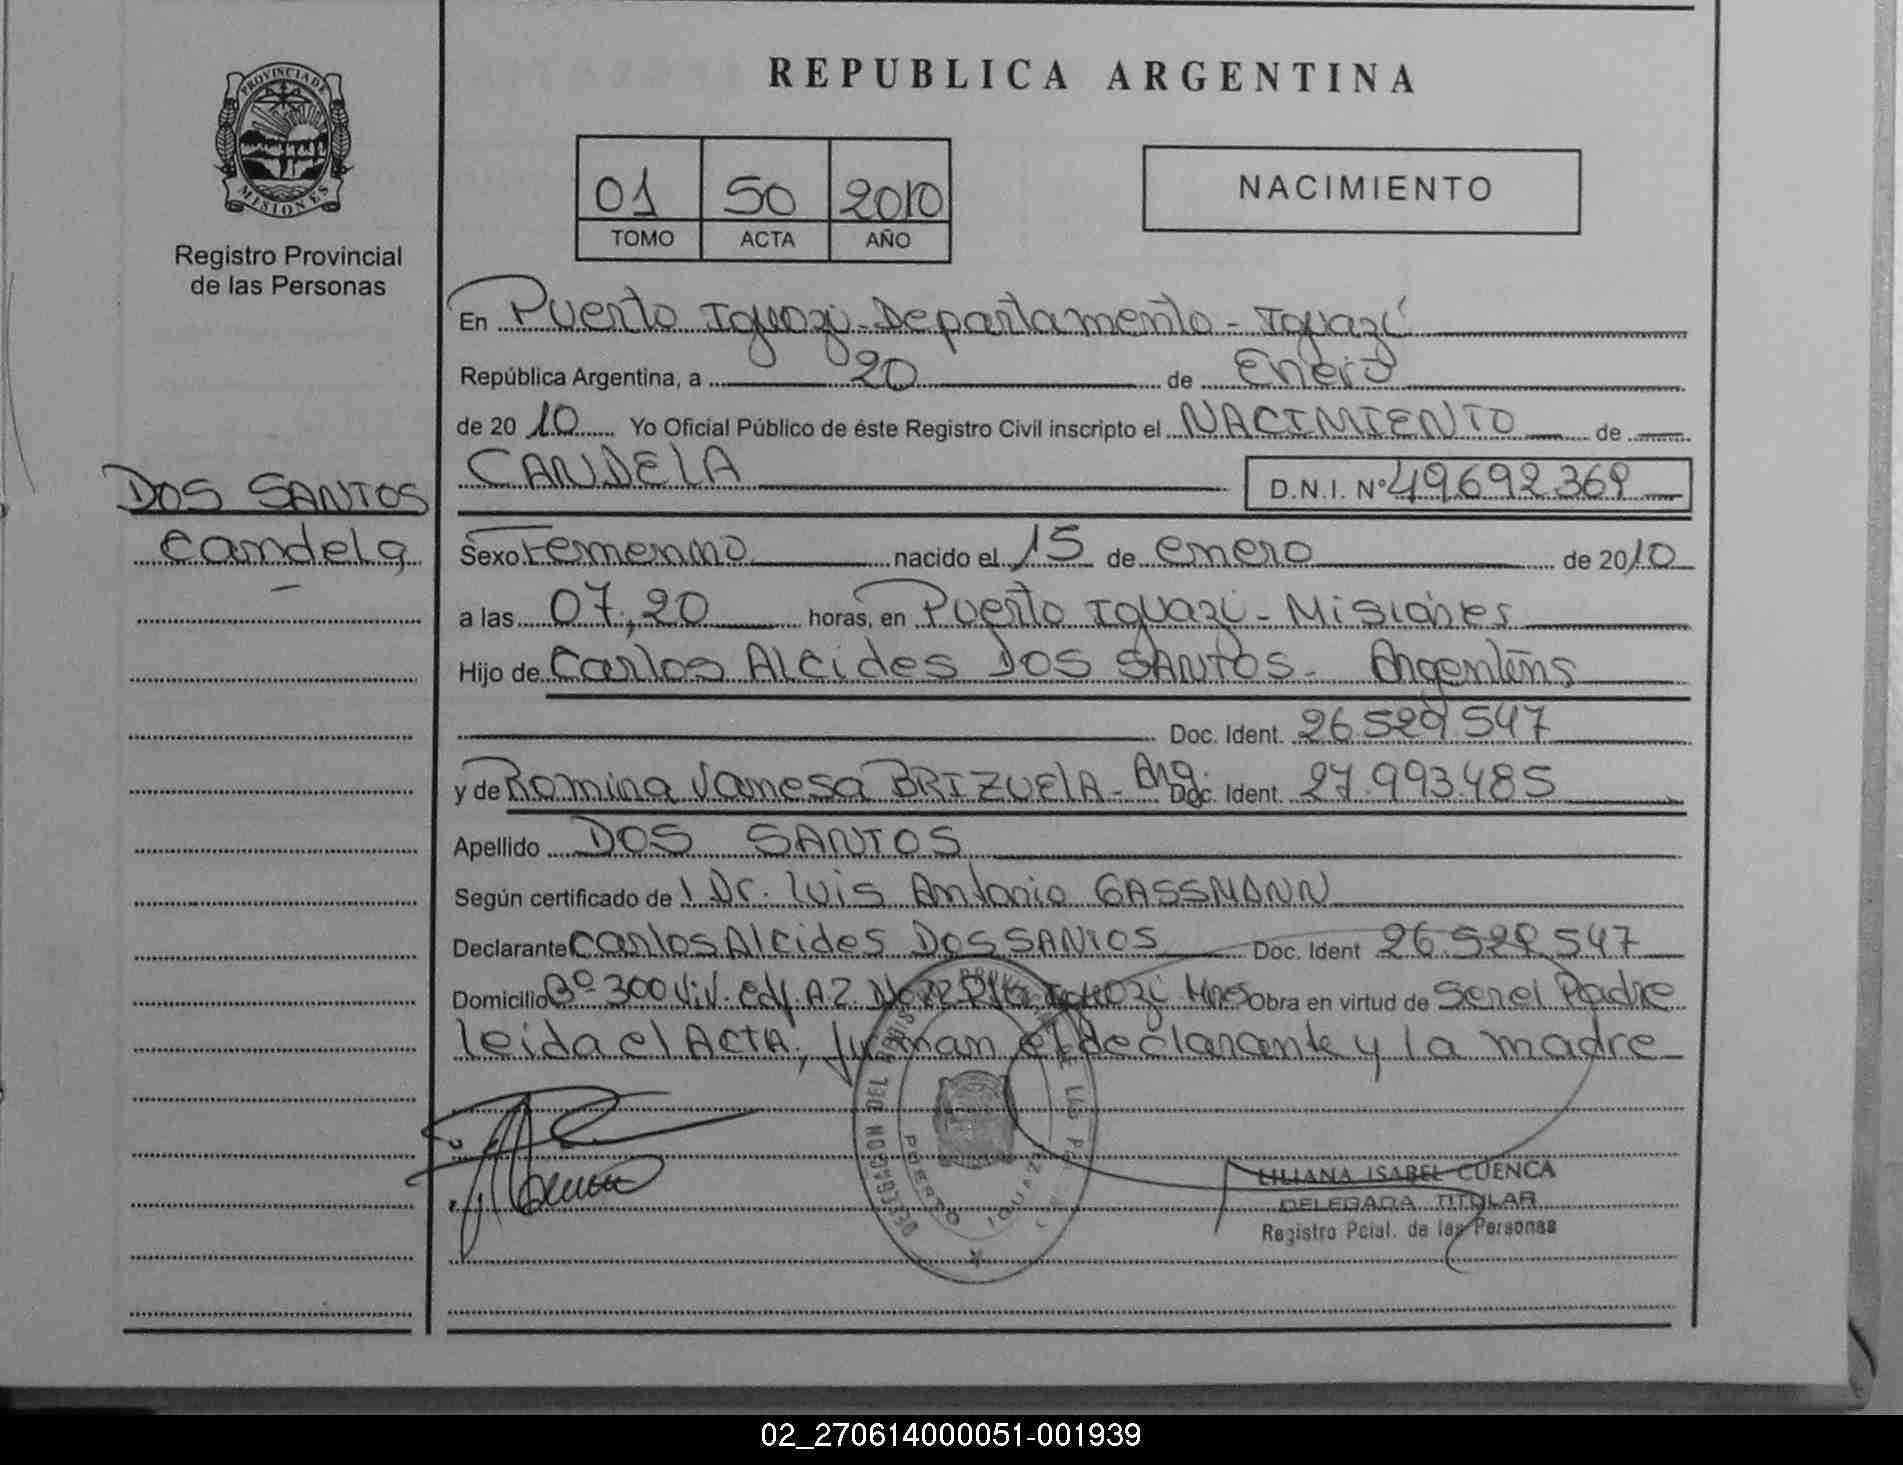 REPUBLICA ARGENTINA
PROVINCIA DE
MISIONES
Registro Provincial
de las Personas
01 50 2010
TOMO ACTA AÑO
NACIMIENTO
En Puerto Iguazú - Departamento - Iguazú
República Argentina, a 20 de Enero
de 2010 Yo Oficial Público de éste Registro Civil inscripto el NACIMIENTO de
CANDELA D.N.I. Nº 49.692.369
DOS SANTOS
Candela
Sexo Femenino nacido el 15 de enero de 2010
a las 07,20 horas, en Puerto Iguazú - Misiones
Hijo de Carlos Alcides DOS SANTOS - Argentino
Doc. Ident. 26.529.547
y de Romina Vanesa BRIZUELA - Arg. Doc. Ident. 27.993.485
Apellido DOS SANTOS
Según certificado de Dr. Luis Antonio GASSMANN
Declarante Carlos Alcides DOS SANTOS Doc. Ident 26.529.547
Domicilio Bº 300 Viv. edf. A2 Iguazú Mnes Obra en virtud de Ser el Padre
leida el ACTA, firman el declarante y la madre
PUERTO IGUAZU
LILIANA ISABEL CUENCA
DELEGADA TITULAR
Registro Pcial. de las Personas
02_270614000051-001939